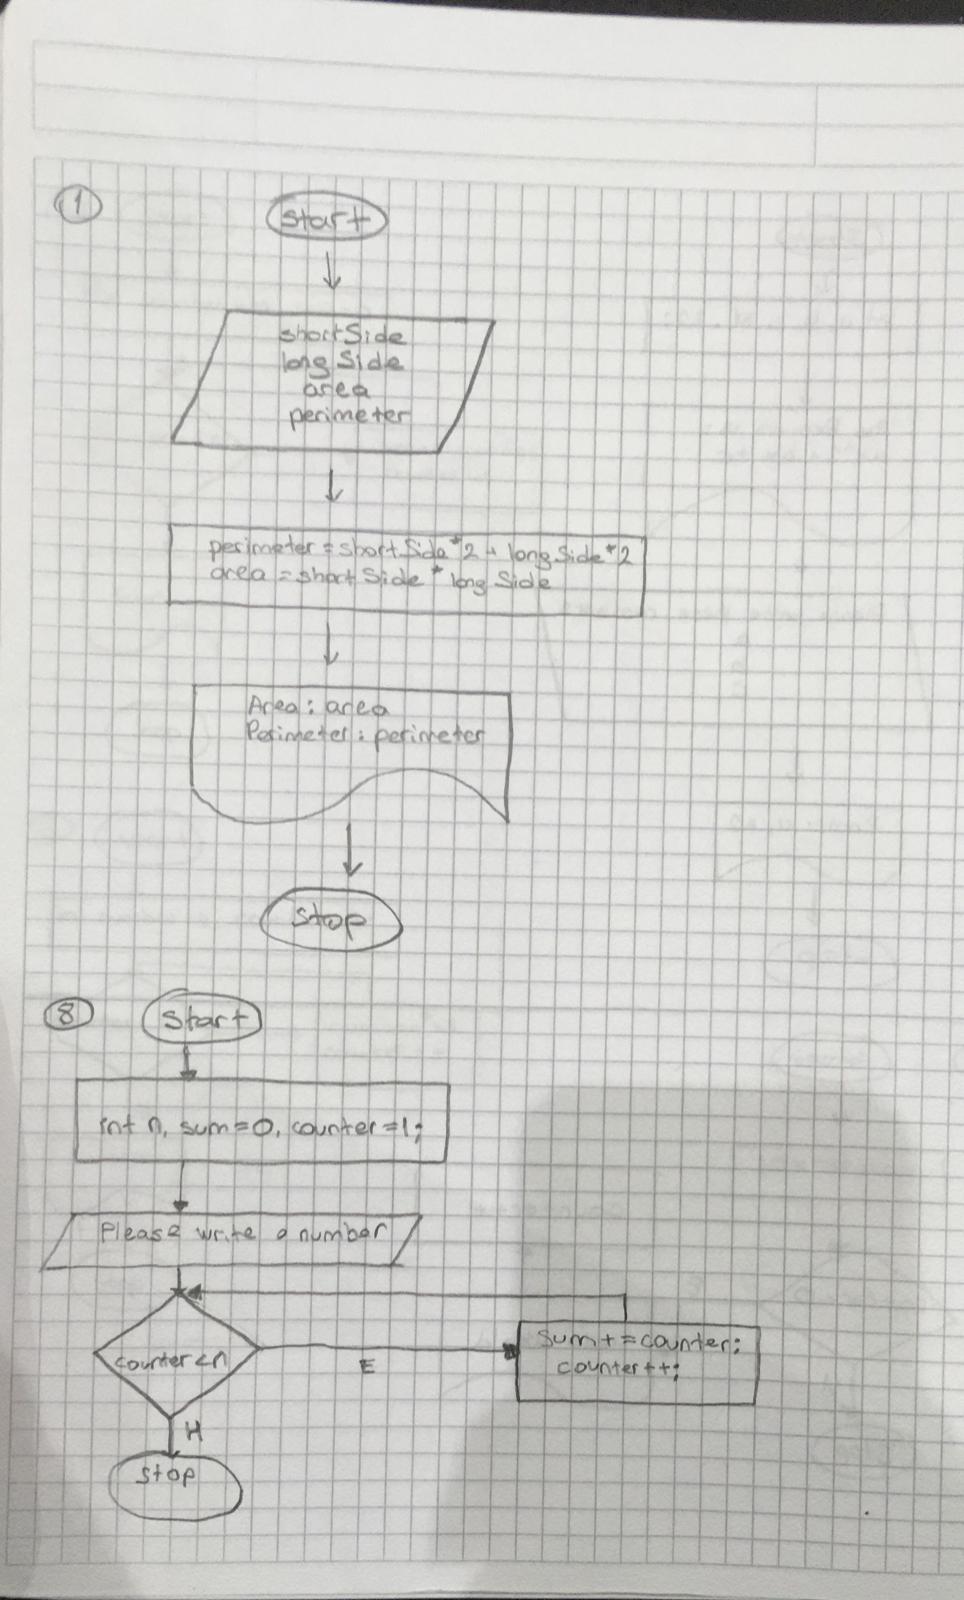 1
start
shortSide
long Side
area
perimeter
perimeter = short Side*2 + long Side*2
area = short Side * long Side
Area : area
Perimeter : perimeter
stop
8
start
int n, sum=0, counter=1;
Please write a number
counter<n
E
sum+=counter;
counter++;
H
stop